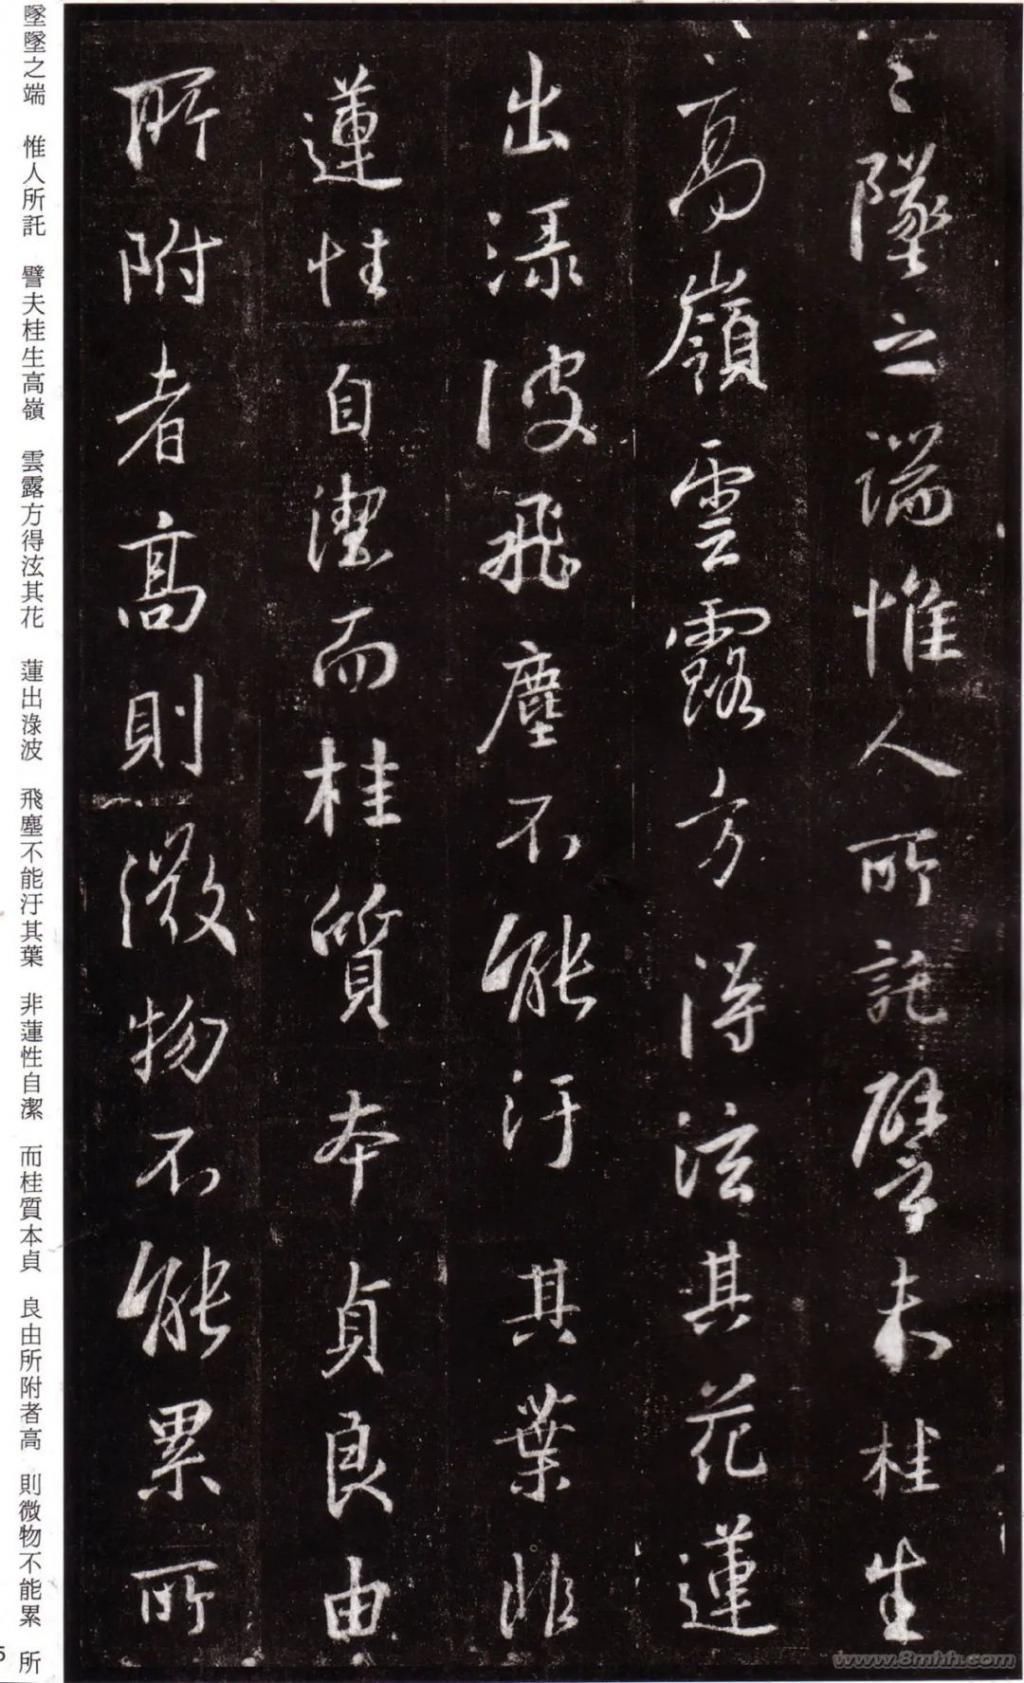 〻墜之端惟人所託譬夫桂生
高嶺雲露方得泫其花蓮
出淥波飛塵不能汙其葉非
蓮性自潔而桂質本貞良由
所附者高則微物不能累所
墜墜之端 惟人所託 譬夫桂生高嶺 雲露方得泫其花 蓮出淥波 飛塵不能汙其葉 非蓮性自潔 而桂質本貞 良由所附者高 則微物不能累 所
5
www.8mhh.com